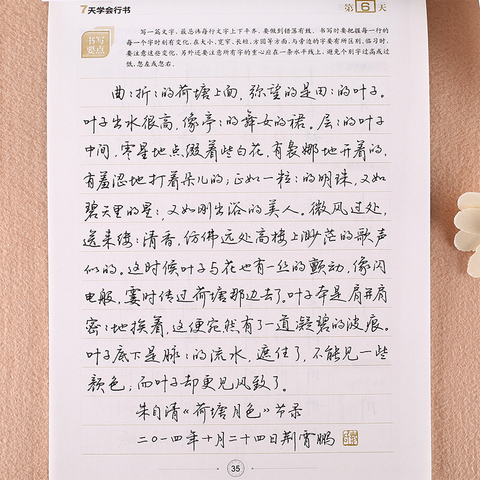 7天学会行书
第6天
书写要点
写一篇文字，最忌讳每行文字上下平齐，要做到错落有致。书写时要把握每一行的
每一个字时刻有变化，在大小、宽窄、长短、方圆等方面，与旁边的字要有所区别，临习时，
要注意这些变化。另外还要注意所有字的重心应在一条水平线上，避免个别字过高或过
低，忽左或忽右。
曲:折:的荷塘上面，弥望的是田:的叶子。
叶子出水很高，像亭:的舞女的裙。层:的叶子
中间，零星地点缀着些白花，有袅娜地开着的，
有羞涩地打着朵儿的；正如一粒:的明珠，又如
碧天里的星:，又如刚出浴的美人。微风过处，
送来缕:清香，仿佛远处高楼上渺茫的歌声
似的。这时候叶子与花也有一丝的颤动，像闪
电般，霎时传过荷塘那边去了。叶子本是肩并肩
密:地挨着，这便宛然有了一道凝碧的波痕。
叶子底下是脉:的流水，遮住了，不能见一些
颜色；而叶子却更见风致了。
朱自清《荷塘月色》节录
二〇一四年十月二十四日荆霄鹏
35